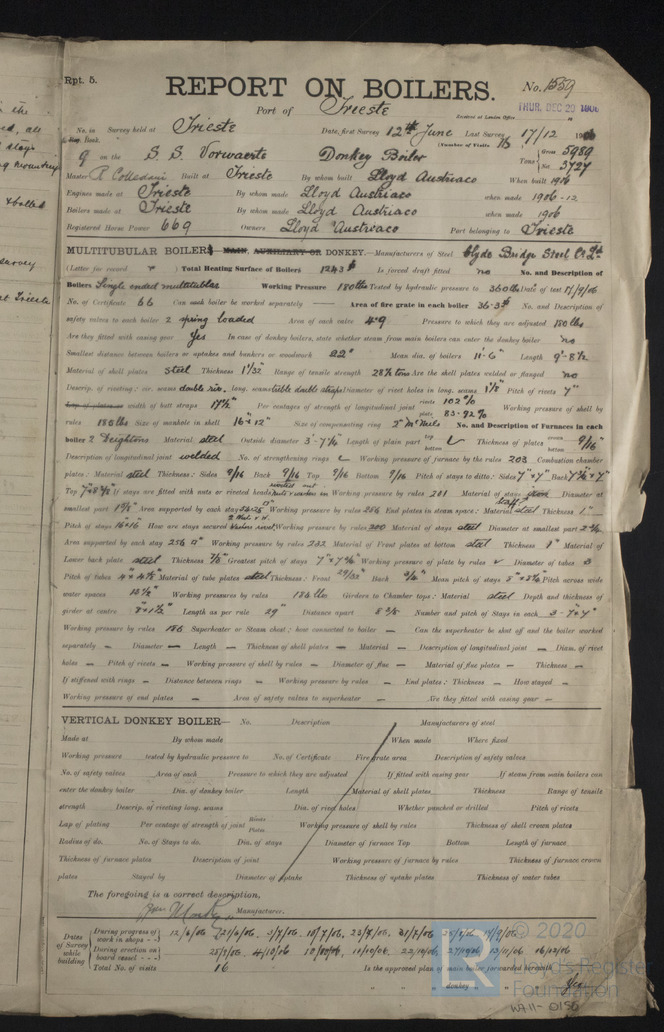 Rpt. 5.
REPORT ON BOILERS.
No. 1559
Port of Trieste
Received at London Office
THUR. DEC 20 1906
No. in Survey held at Trieste Date, first Survey 12th June Last Survey 17/12 1906
Reg. Book.
(Number of Visits
9 on the S. S. Vorwaerts Donkey Boiler
Tons Gross 5989
Net 3727
Master R Colledani Built at Trieste By whom built Lloyd Austriaco When built 1906
Engines made at Trieste By whom made Lloyd Austriaco when made 1906-12
Boilers made at Trieste By whom made Lloyd Austriaco when made 1906
Registered Horse Power 669 Owners Lloyd Austriaco Port belonging to Trieste
MULTITUBULAR BOILERS MAIN, AUXILIARY OR DONKEY.—Manufacturers of Steel Clyde Bridge Steel Co. Ltd.
(Letter for record r) Total Heating Surface of Boilers 1243 Is forced draft fitted no No. and Description of
Boilers Single ended multitubular Working Pressure 180 lbs Tested by hydraulic pressure to 360 lbs Date of test 17/9/06
No. of Certificate 66 Can each boiler be worked separately — Area of fire grate in each boiler 36.3 No. and Description of
safety valves to each boiler 2 spring loaded Area of each valve 4.9 Pressure to which they are adjusted 180 lbs
Are they fitted with easing gear Yes In case of donkey boilers, state whether steam from main boilers can enter the donkey boiler no
Smallest distance between boilers or uptakes and bunkers or woodwork 22" Mean dia. of boilers 11'-6" Length 9'-8½
Material of shell plates Steel Thickness 1 1/32 Range of tensile strength 28/32 tons Are the shell plates welded or flanged no
Descrip. of riveting: cir. seams double riv. long. seams treble double straps Diameter of rivet holes in long. seams 1⅛" Pitch of rivets 7"
Lap of plates or width of butt straps 17½" Per centages of strength of longitudinal joint rivets 102 % plate 83.92 % Working pressure of shell by
rules 186 lbs Size of manhole in shell 16" x 12" Size of compensating ring 2" McNeils No. and Description of Furnaces in each
boiler 2 Deightons Material steel Outside diameter 3'-7⅛ Length of plain part top bottom Thickness of plates crown bottom 9/16"
Description of longitudinal joint welded No. of strengthening rings Working pressure of furnace by the rules 203 Combustion chamber
plates: Material steel Thickness: Sides 9/16 Back 9/16 Top 9/16 Bottom 9/16 Pitch of stays to ditto: Sides 7" x 7" Back 7⅜ x 7"
Top 7" x 8½" If stays are fitted with nuts or riveted heads Working pressure by rules 201 Material of stays steel Diameter at
smallest part Area supported by each stay Working pressure by rules 256 End plates in steam space: Material steel Thickness 1"
Pitch of stays 16 x 16 How are stays secured Working pressure by rules 200 Material of stays steel Diameter at smallest part
Area supported by each stay 256 Working pressure by rules 232 Material of Front plates at bottom steel Thickness 1" Material of
Lower back plate steel Thickness ⅞ Greatest pitch of stays Working pressure of plate by rules Diameter of tubes 3
Pitch of tubes 4" x 4½" Material of tube plates steel Thickness: Front 29/32" Back ¾" Mean pitch of stays Pitch across wide
water spaces 13½" Working pressures by rules 186 lbs Girders to Chamber tops: Material steel Depth and thickness of
girder at centre 8" x 1½" Length as per rule 29" Distance apart 8⅜ Number and pitch of Stays in each 3 - 7" x 7"
Working pressure by rules 186 Superheater or Steam chest; how connected to boiler — Can the superheater be shut off and the boiler worked
separately — Diameter — Length — Thickness of shell plates — Material — Description of longitudinal joint — Diam. of rivet
holes — Pitch of rivets — Working pressure of shell by rules — Diameter of flue — Material of flue plates — Thickness —
If stiffened with rings — Distance between rings — Working pressure by rules — End plates: Thickness — How stayed —
Working pressure of end plates — Area of safety valves to superheater — Are they fitted with easing gear —
VERTICAL DONKEY BOILER— No. Description Manufacturers of steel
Made at By whom made When made Where fixed
Working pressure tested by hydraulic pressure to No. of Certificate Fire grate area Description of safety valves
No. of safety valves Area of each Pressure to which they are adjusted If fitted with easing gear If steam from main boilers can
enter the donkey boiler Dia. of donkey boiler Length Material of shell plates Thickness Range of tensile
strength Descrip. of riveting long. seams Dia. of rivet holes Whether punched or drilled Pitch of rivets
Lap of plating Per centage of strength of joint Rivets Plates Working pressure of shell by rules Thickness of shell crown plates
Radius of do. No. of Stays to do. Dia. of stays Diameter of furnace Top Bottom Length of furnace
Thickness of furnace plates Description of joint Working pressure of furnace by rules Thickness of furnace crown
plates Stayed by Diameter of uptake Thickness of uptake plates Thickness of water tubes
The foregoing is a correct description,
Manufacturer.
Dates of Survey while building
During progress of work in shops - - 12/6/06, 21/6/06, 3/7/06, 10/7/06, 23/7/06, 31/7/06
During erection on board vessel - - - 25/9/06, 4/10/06, 10/10/06, 22/10/06, 27/10/06, 13/11/06, 16/12/06
Total No. of visits 16
Is the approved plan of main boiler forwarded herewith
" " " donkey " " " Yes
LR © 2020
Lloyd's Register
Foundation
WA11-0156